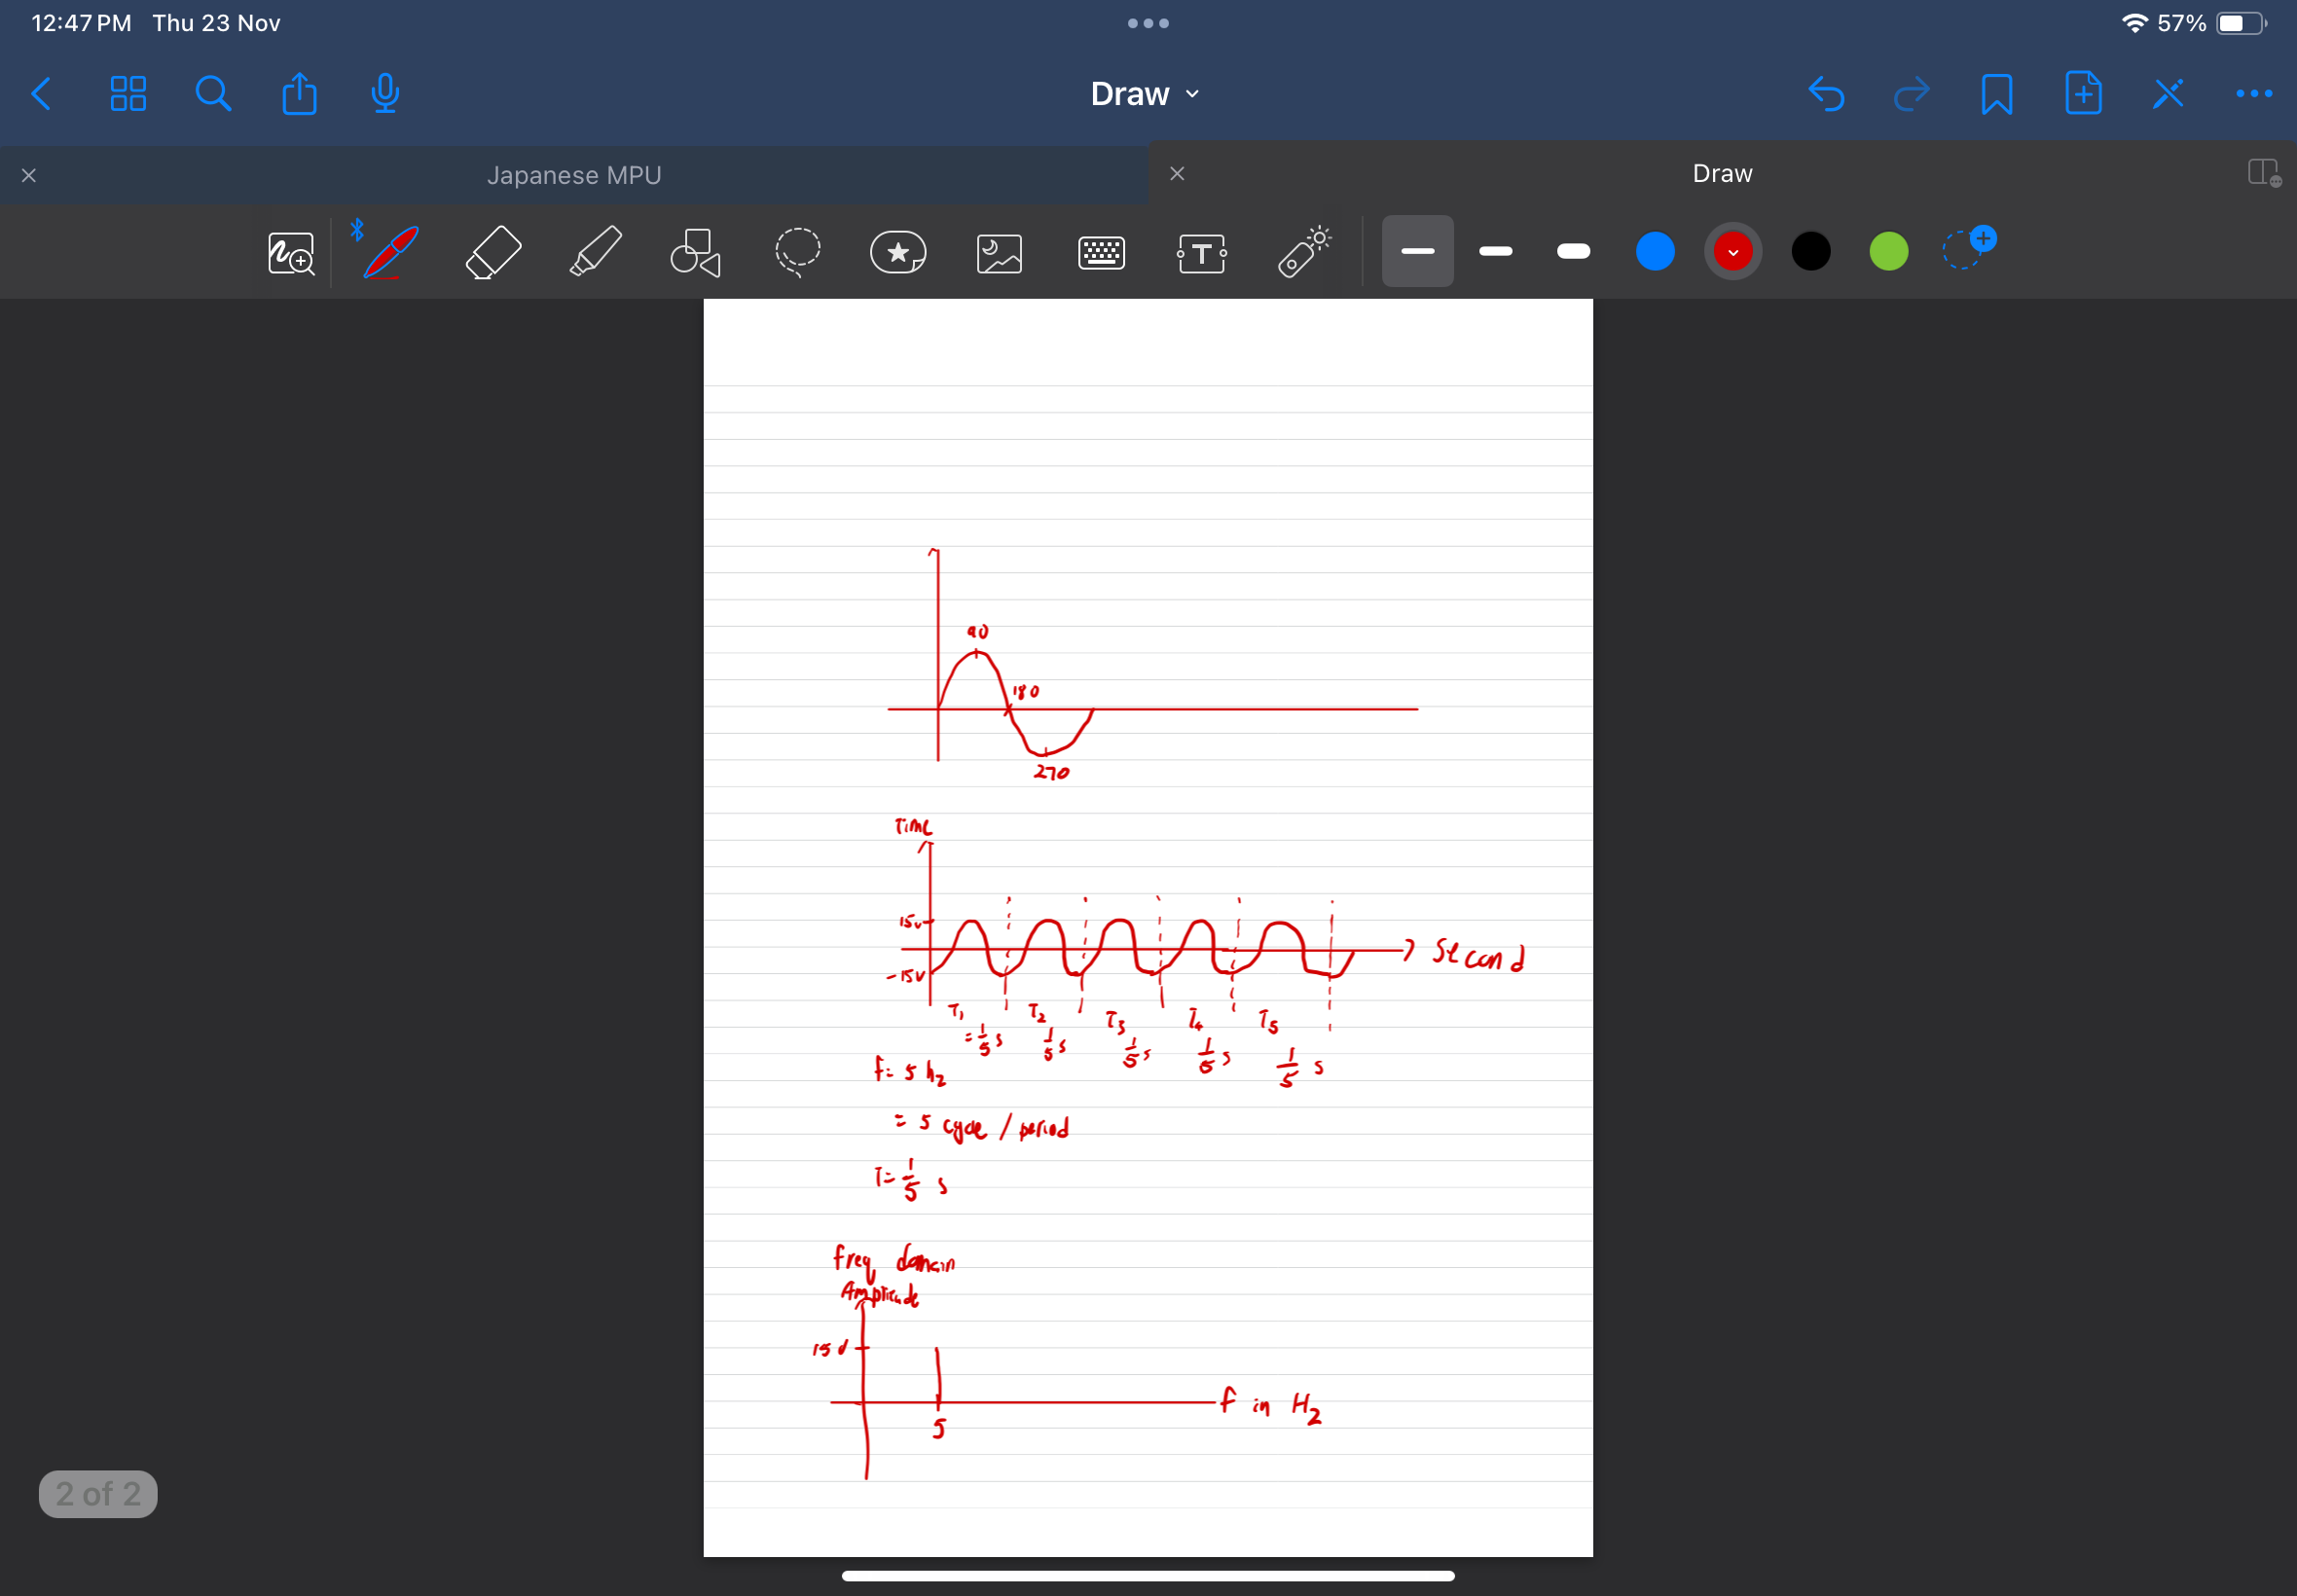 12:47 PM Thu 23 Nov
57%
Draw
Japanese MPU
Draw
T
90
180
270
Time
15v
-15v
Second
T1 T2 T3 T4 T5
=1/5 s 1/5 s 1/5 s 1/5 s 1/5 s
f= 5 hz
= 5 cycle / period
T= 1/5 s
freq domain
Amplitude
15
f in Hz
5
2 of 2